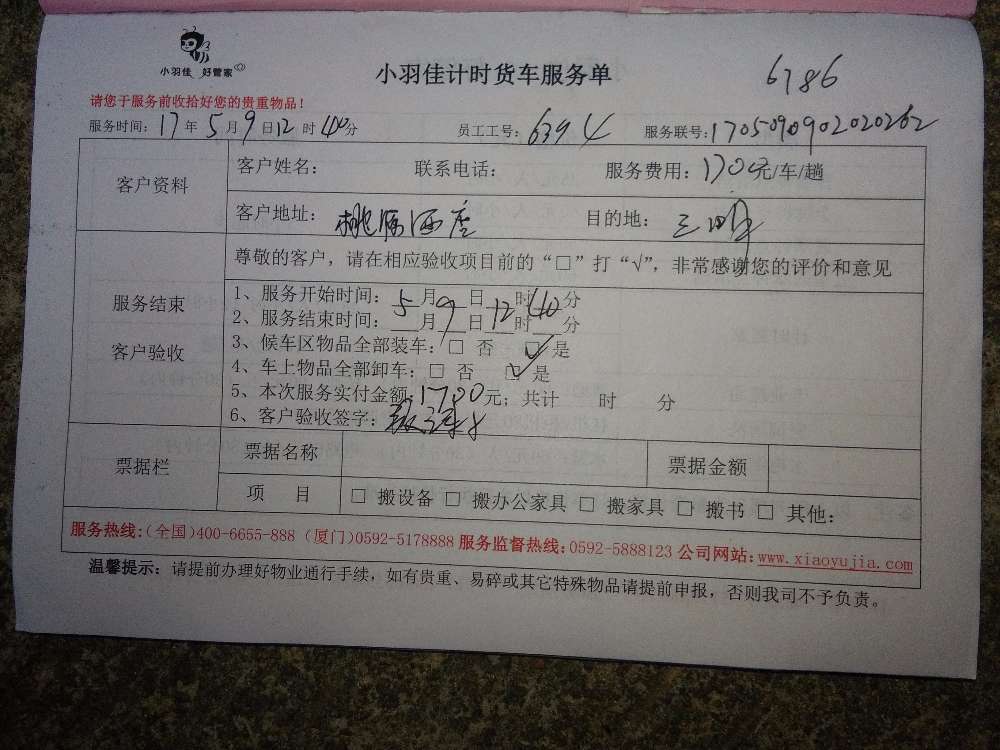 小羽佳 好管家
小羽佳计时货车服务单
6786
请您于服务前收拾好您的贵重物品！
服务时间：17年5月9日12时40分 员工工号：6394 服务联号：1705090902020262
客户资料
客户姓名： 联系电话： 服务费用：1700元/车/趟
客户地址： 酒店 目的地：三明
服务结束
客户验收
尊敬的客户，请在相应验收项目前的“□”打“√”，非常感谢您的评价和意见
1、服务开始时间：5月9日12时40分
2、服务结束时间：__月__日__时__分
3、候车区物品全部装车：□ 否 ☑ 是
4、车上物品全部卸车：□ 否 ☑ 是
5、本次服务实付金额：1700元；共计 时 分
6、客户验收签字：
票据栏
票据名称 票据金额
项 目 □ 搬设备 □ 搬办公家具 □ 搬家具 □ 搬书 □ 其他：
服务热线:(全国)400-6655-888 (厦门)0592-5178888 服务监督热线:0592-5888123 公司网站:www.xiaoyujia.com
温馨提示：请提前办理好物业通行手续，如有贵重、易碎或其它特殊物品请提前申报，否则我司不予负责。